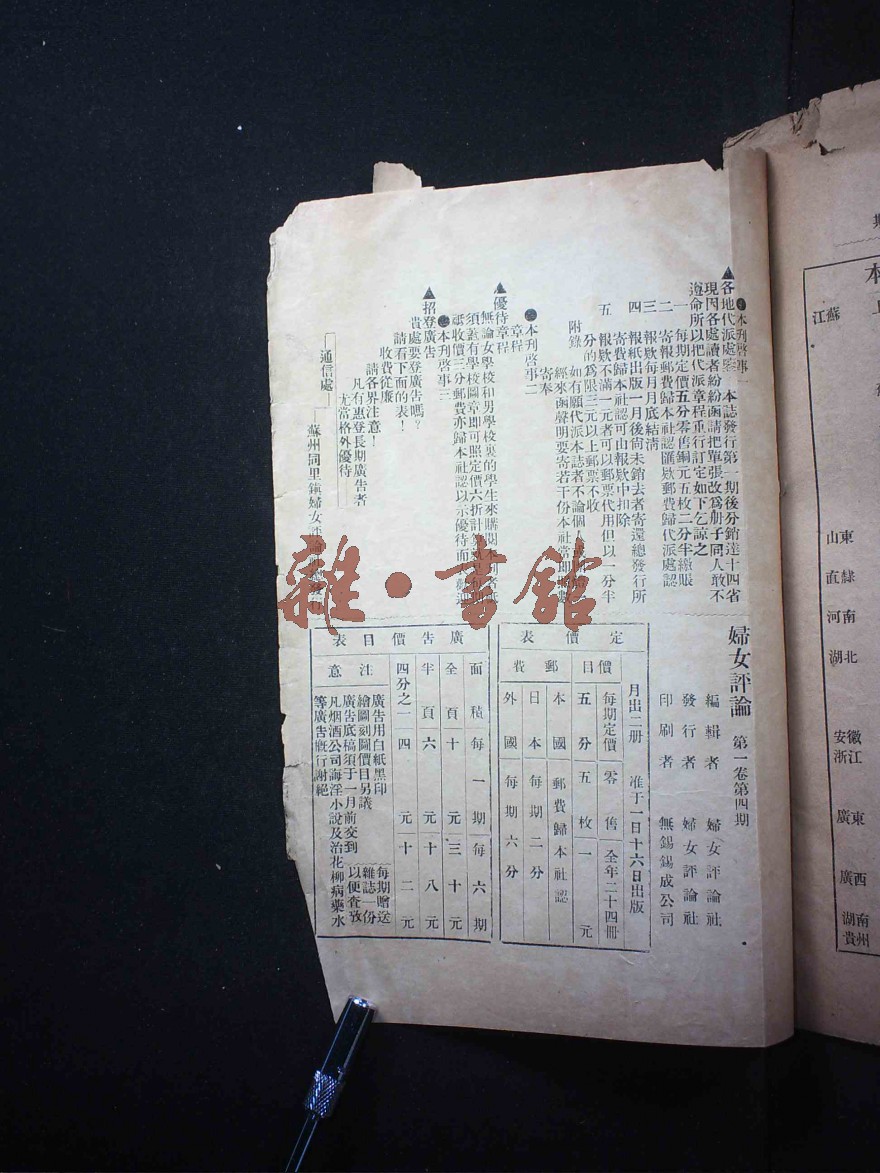 ●本刊啓事一
▲各地代派處鑒 本誌發行第一期後分銷達十四省
現因各處讀者紛紛函請把單張改爲册子同人敢不
遵命所以把代派章程重行訂定如下乞諒之
一 每期定價五分零售銅元五枚二分半繳賬
二 寄報郵費歸本社認匯欵郵費歸代派處認
三 報欵每月月底結清
四 報紙出版一月後尙未銷去者寄還總發行所
寄費歸本社認可由報欵中扣除
五 報欵不滿一元者可以郵票代用但以一分半
分的爲限三元以上郵票不收
附錄 如有願代派本誌者不論個人
經來函聲明要寄若干份本社當即
寄奉
●本刊啓事二
章程
▲優待章程
無論女學校和男學校裏的學生來購閱本刊者
須蓋有學校圖章即可照定價六折計算
祗收價三分郵費亦歸本社認以示優待而
●本刊啓事三
▲招登廣告
貴處要登廣告嗎?
請看下面的表!
收費從廉
請各界注意!
凡有惠登長期廣告者
尤當格外優待
通信處
蘇州同里鎮婦女評論
婦女評論 第一卷第四期
編輯者 婦女評論社
發行者 婦女評論社
印刷者 無錫錫成公司
定價表
月出二册 准于一日十六日出版
價目 每期定價 零售 全年二十四冊
五分 五枚 一元
郵費 本國 郵費歸本社認
日本 每期二分
外國 每期六分
廣告價目表
面積 每一期 每六期
全頁 十元 三十元
半頁 六元 十八元
四分之一 四元 十二元
注意
廣告用白紙黑印
繪圖刻圖價目另議
廣告底稿須于一月前交到
凡烟酒公司誨淫小說及治花柳病藥水
等廣告槪行謝絕
每期贈送
雜誌一份
以便查攷
江蘇
山東
直隸
河南
湖北
安徽
浙江
廣東
廣西
湖南
貴州
雜·書館